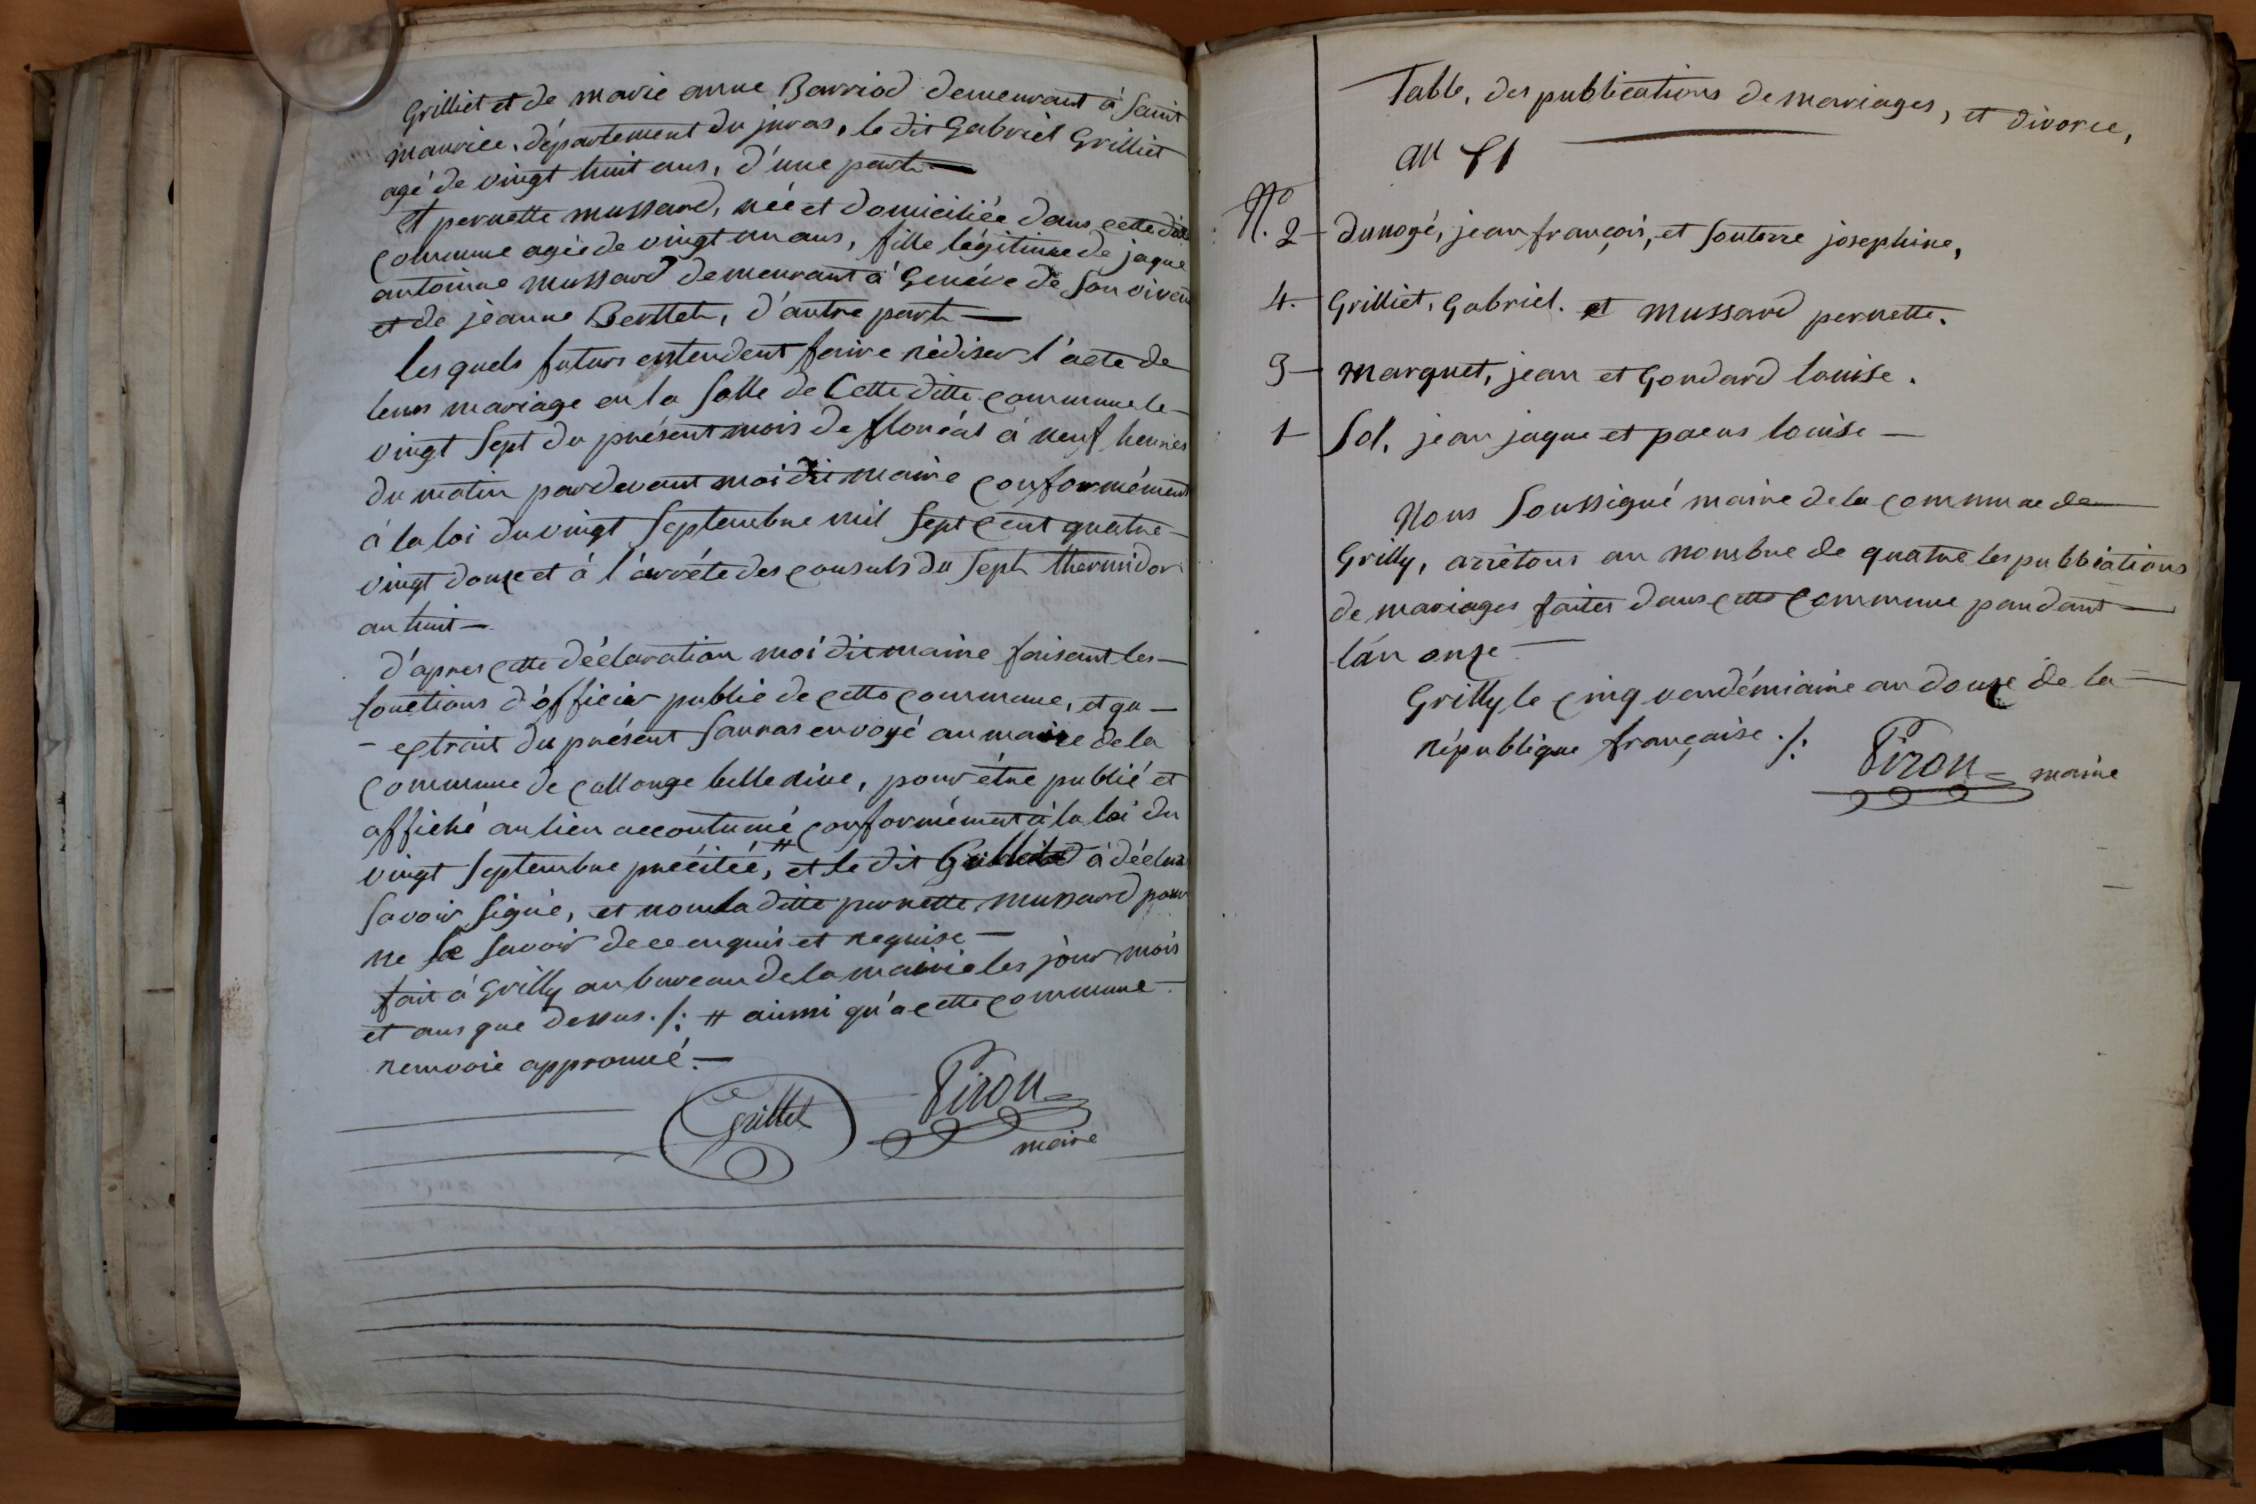 Grilliet et de marie anne Barriod demeurant à Saint
maurice, département du juras, le dit Gabriel Grilliet
agé de vingt huit ans, d'une part —
et pernette mussard, née et domiciliée dans cette ditte
commune agée de vingt un ans, fille légitime de jaque
antoine mussard demeurant à Genéve de son vivant
et de jeanne Berttet, d'autre part —
les quels futurs entendent faire rédiser l'acte de
leurs mariage en la salle de Cette ditte commune le —
vingt sept du présent mois de floréal à neuf heures
du matin pardevant moi dit maire conformément
à la loi du vingt septembre mil sept cent quatre —
vingt douze et à l'arréte des consuls du sept thermidor
an huit —
d'apres cette déclaration moi dit maire faisant les —
fonctions d'officier public de cette commune, et qu —
— extrait du présent sauras envoyé au maire de la
commune de Collonge bellerive, pour être publié et
affiché au lieu accoutumé conformément à la loi du
vingt septembre précitée, # et le dit à déclaré
savoir signé, et non la ditte pernette mussard pour
ne le savoir de ce enquis et requise —
fait à Grilly au bureau de la mairie les jour mois
et ans que dessus ./: # ainsi qu'a cette commune —
renvoie approuvé. —
Grillet Piron
maire
Table, des publications de mariages, et divorce,
an 11
N.º
2 — dunogé, jean françois, et Souterre josephine,
4. — Grilliet, Gabriel. et Mussard pernette.
3 — Marquet, jean et Gondard louise.
1 — Sol, jean jaque et paens louise —
Nous Soussigné maire de la commune de —
Grilly, arrêtons au nombre de quatre les publications
de mariages faites dans cette commune pandant —
l'an onze —
Grilly le cinq vandémiaire an douze de la —
république française ./:
Piron maire